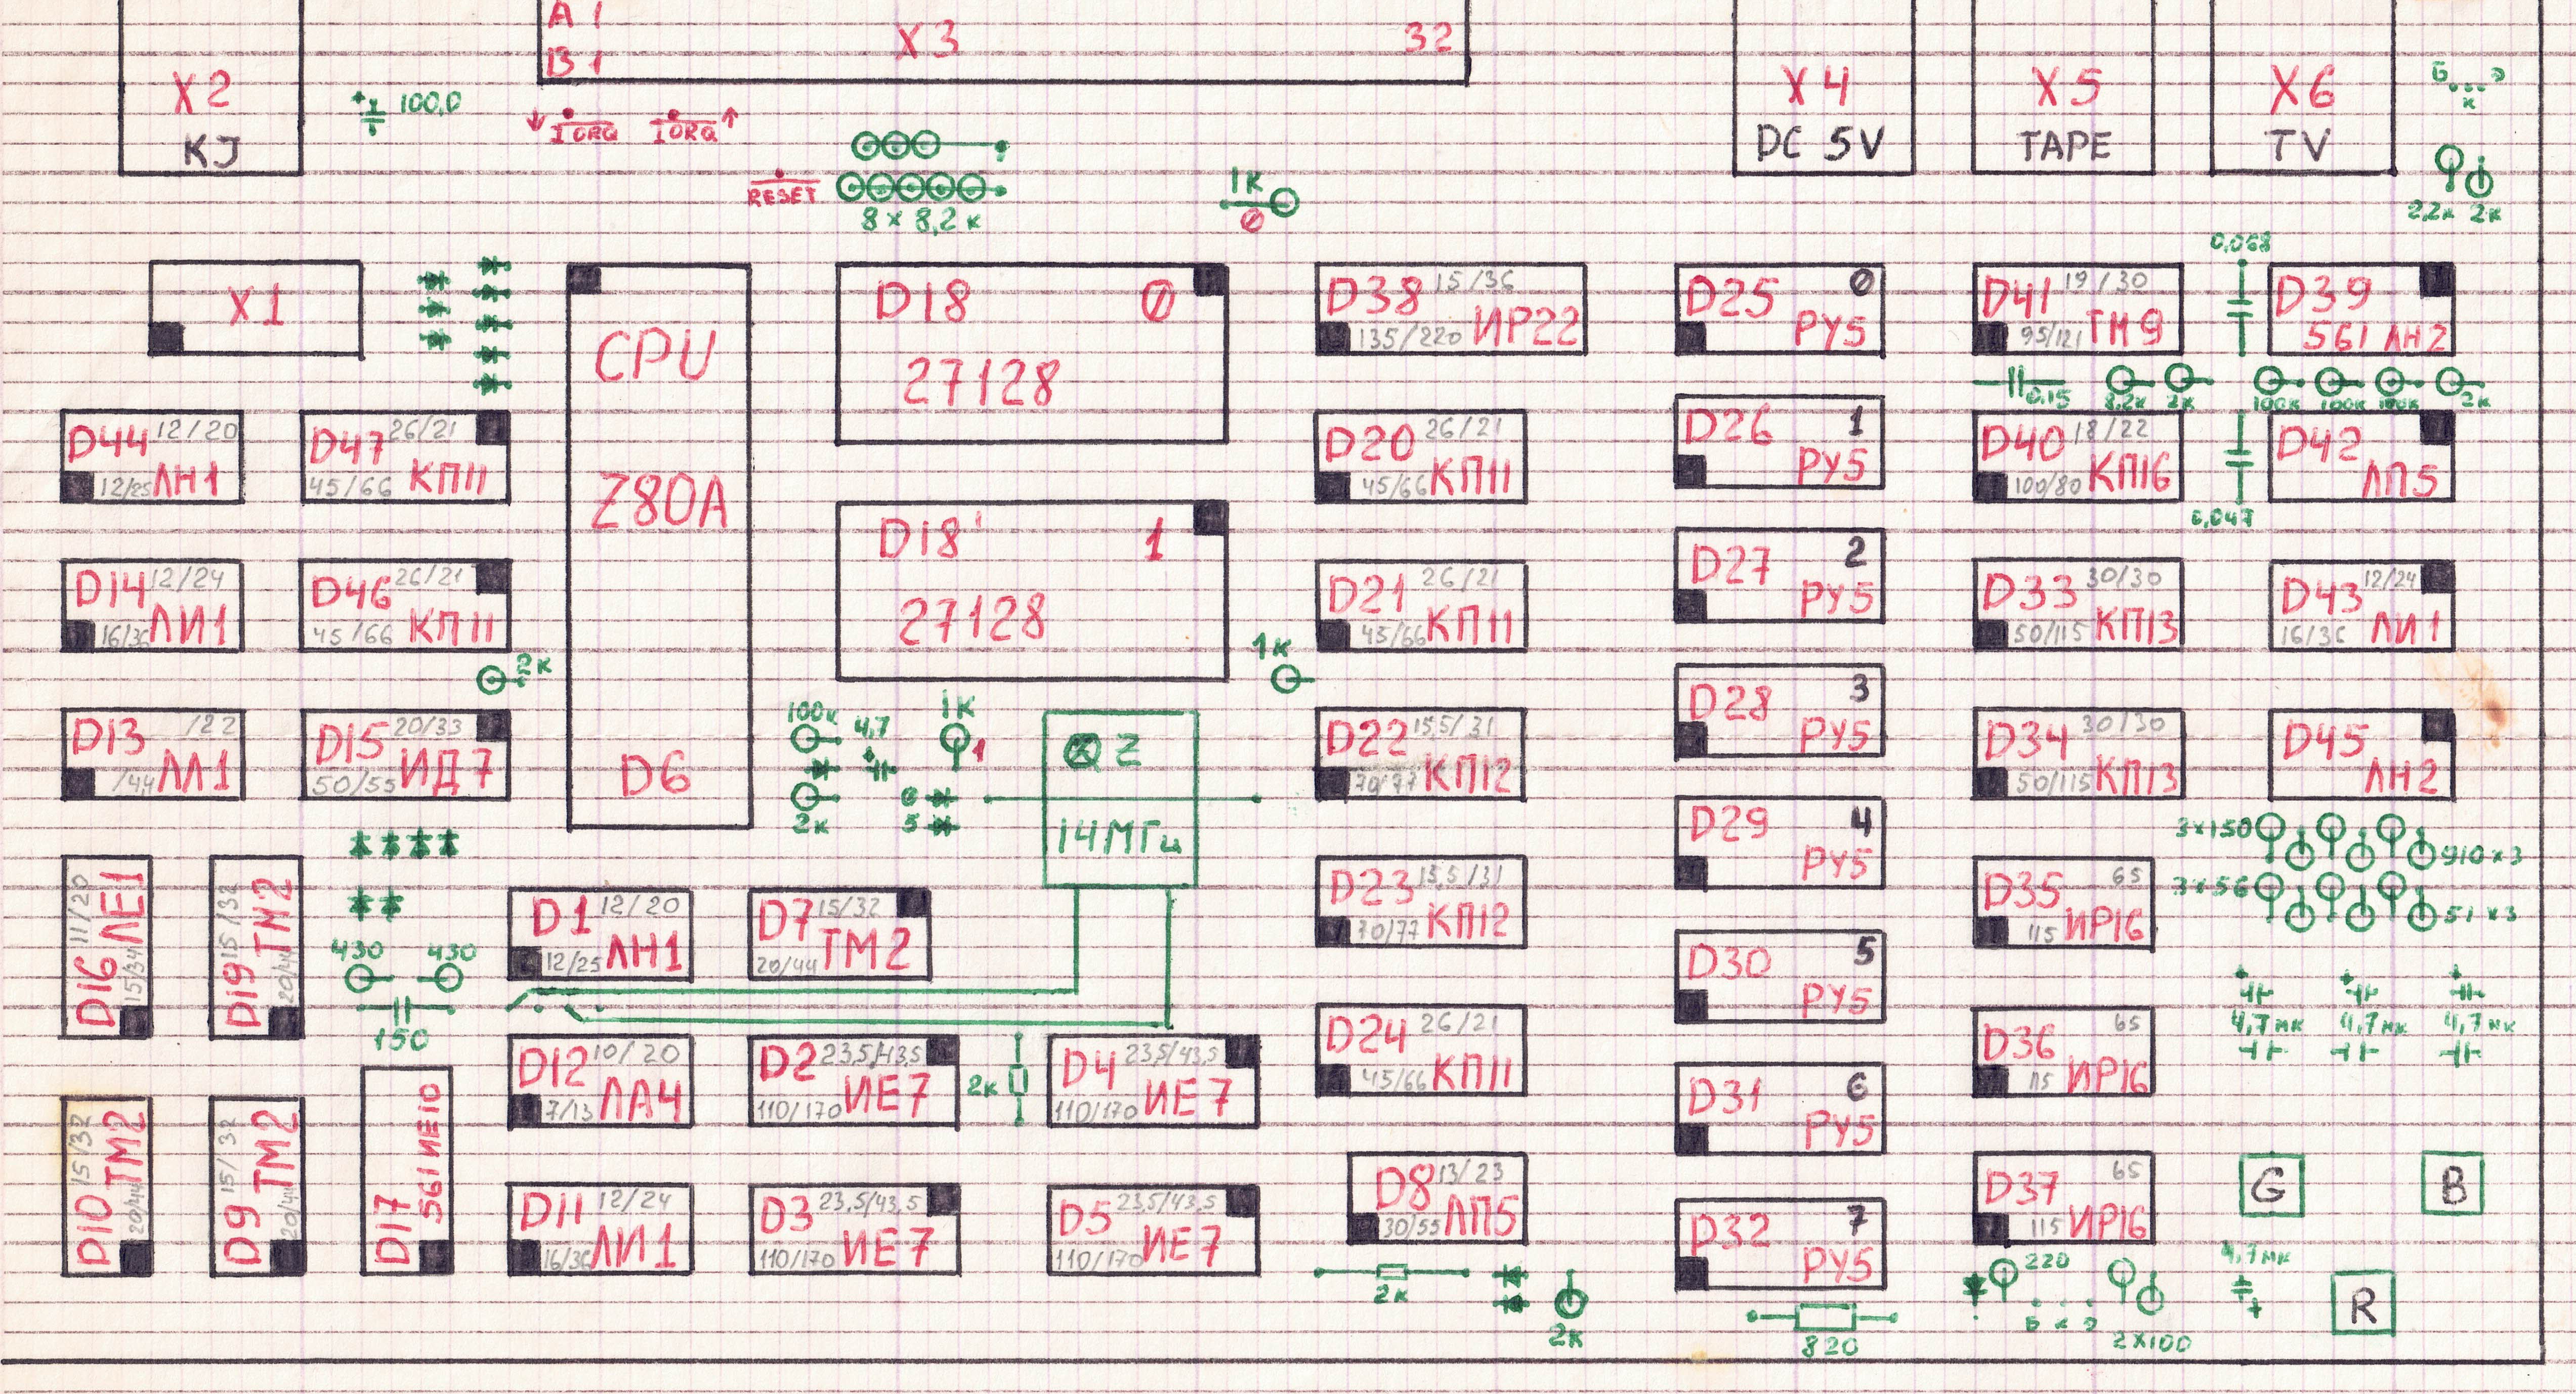 A1
B1
X3
32
X2
KJ
+ 100,0
↓ IORQ IORQ ↑
RESET
8 x 8,2 к
1к
0
X4
DC 5V
X5
TAPE
X6
TV
Б Э
к
2,2к 2к
X1
CPU
Z80A
D6
D18 0
27128
D18' 1
27128
D38 15/36
135/220 ИР22
D25 0
РУ5
D41 19/30
95/121 ТМ9
0,068
D39
561 ЛН2
0,15 8,2к 2к
100к 100к 100к 2к
D44 12/20
12/25 ЛН1
D47 26/21
45/66 КП11
D20 26/21
45/66 КП11
D26 1
РУ5
D40 18/22
100/80 КП16
0,047
D42
ЛП5
D14 12/24
16/36 ЛИ1
D46 26/21
45/66 КП11
2к
D21 26/21
45/66 КП11
1к
D27 2
РУ5
D33 30/30
50/115 КП13
D43 12/24
16/36 ЛИ1
D13 /22
/44 ЛЛ1
D15 20/33
50/55 ИД7
100к 4,7
+
2к
1к
1
6
5
QZ
14МГц
D22 15,5/31
70/77 КП12
D28 3
РУ5
D34 30/30
50/115 КП13
D45
ЛН2
3x150
910x3
3x56
51x3
D16 11/20
15/34 ЛЕ1
D19 15/32
20/44 ТМ2
430 430
150
D1 12/20
12/25 ЛН1
D7 15/32
20/44 ТМ2
D23 15,5/31
70/77 КП12
D29 4
РУ5
D35 65
115 ИР16
D30 5
РУ5
+ + +
4,7мк 4,7мк 4,7мк
D12 10/20
7/13 ЛА4
D2 23,5/43,5
110/170 ИЕ7
2к
D4 23,5/43,5
110/170 ИЕ7
D24 26/21
45/66 КП11
D31 6
РУ5
D36 65
115 ИР16
D10 15/32
20/44 ТМ2
D9 15/32
20/44 ТМ2
D17
561 ИЕ10
D11 12/24
16/36 ЛИ1
D3 23,5/43,5
110/170 ИЕ7
D5 23,5/43,5
110/170 ИЕ7
D8 13/23
30/55 ЛП5
D32 7
РУ5
D37 65
115 ИР16
G
B
2к
2к
820
220
Б К Э
2x100
4,7мк
+
R